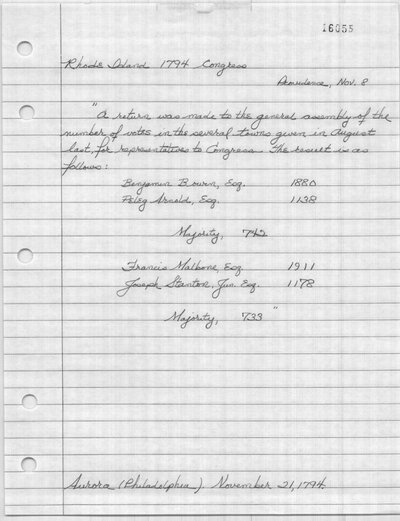 16055
Rhode Island 1794 Congress
Providence, Nov. 8
"A return was made to the general assembly of the
number of votes in the several towns given in August
last, for representatives to Congress. The result is as
follows:
Benjamin Bourn, Esq. 1880
Peleg Arnold, Esq. 1138
Majority, 742
Francis Malbone, Esq. 1911
Joseph Stanton, Jun. Esq. 1178
Majority, 733"
Aurora (Philadelphia) November 21, 1794.